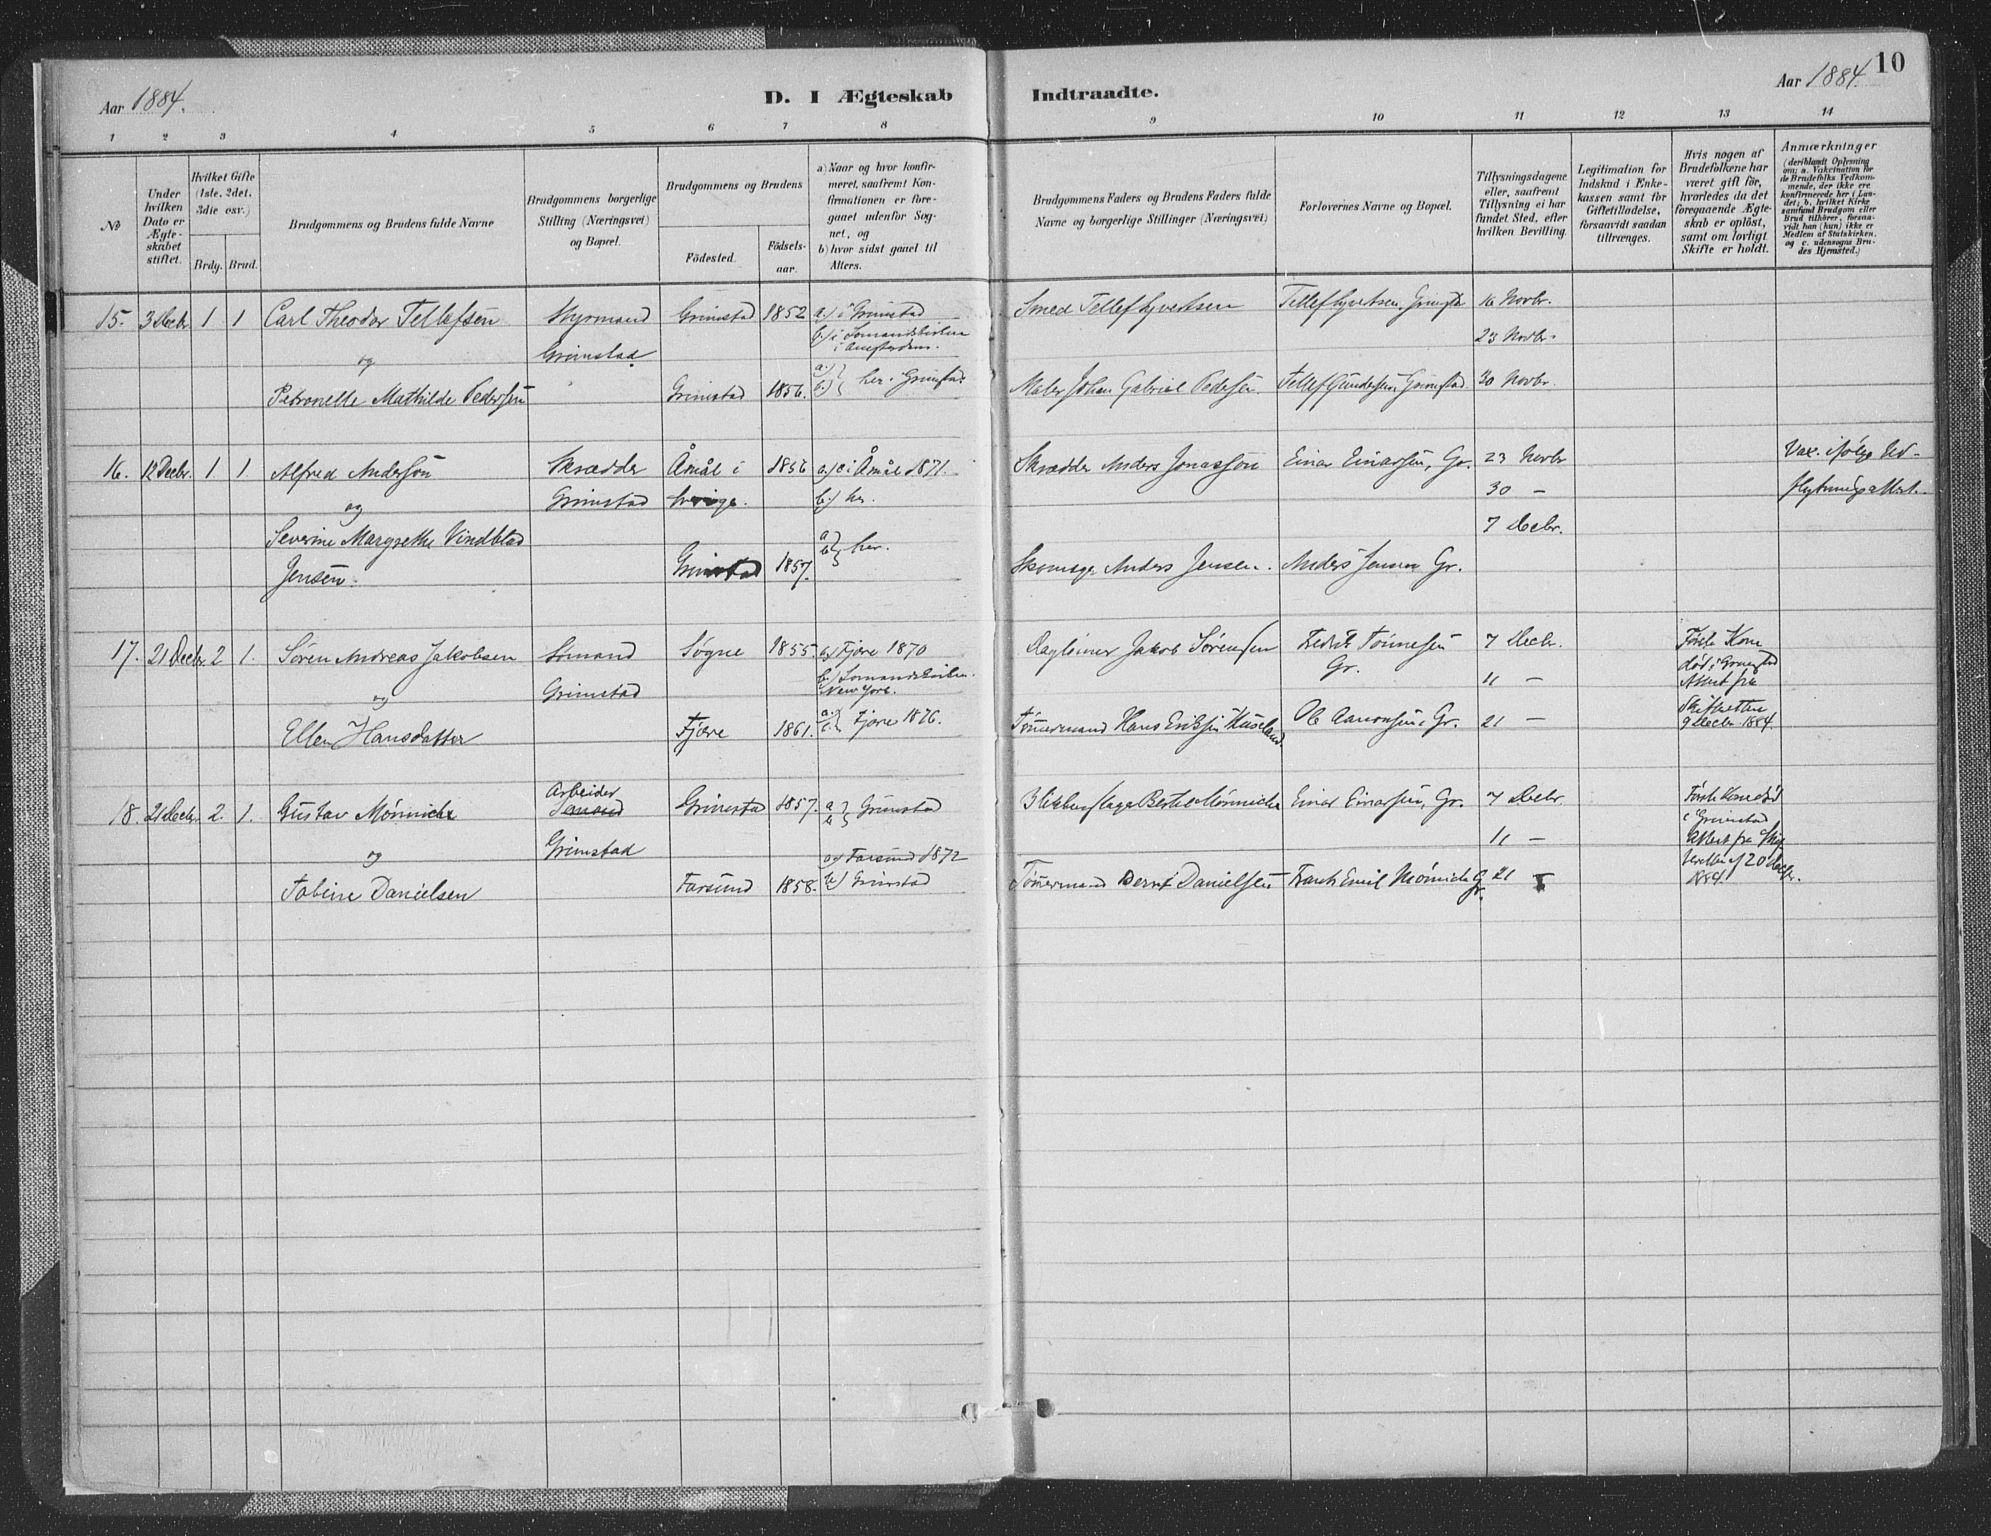 Aar 1884.
D. I Ægteskab Indtraadte.
Aar 1884. 10
1 2 3 4 5 6 7 8 9 10 11 12 13 14
No
Under hvilken Dato er Ægteskabet stiftet.
Hvilket Gifte (1ste, 2det, 3die osv.)
Brdg. Brud.
Brudgommens og Brudens fulde Navne
Brudgommens borgerlige Stilling (Næringsvei) og Bopæl.
Brudgommens og Brudens
Födested.
Födselsaar.
a) Naar og hvor konfirmeret, saafremt Konfirmationen er foregaaet udenfor Sognet, og
b) hvor sidst gaaet til Alters.
Brudgommens Faders og Brudens Faders fulde Navne og borgerlige Stillinger (Næringsvei)
Forlovernes Navne og Bopæl.
Tillysningsdagene eller, saafremt Tillysning ei har fundet Sted, efter hvilken Bevilling.
Legitimation for Indskud i Enkekassen samt for Giftetilladelse, forsaavidt saadan tiltrænges.
Hvis nogen af Brudefolkene har været gift för, hvorledes da det foregaaende Ægteskab er oplöst, samt om lovligt Skifte er holdt.
Anmærkninger
(deriblandt Oplysning om: a. Vaksination for de Brudefolks Vedkommende, der ikke ere konfirmerede her i Landet; b. hvilket Kirkesamfund Brudgom eller Brud tilhörer, forsaavidt han (hun) ikke er Medlem af Statskirken, og c. udensogns Brudes Hjemsted.)
15. 3 Decbr 1 1 Carl Theodor Tellefsen Styrmand Grimstad 1852 a) i Grimstad Smed Tellef Syvertsen Tellef Syvertsen, Grimstad 16 Novbr.
og Grimstad b) i Sømandskirken i Amsterdam. 23 Novbr.
Petronelle Mathilde Pedersen Grimstad 1856. a) b) her. Grimstad. Maler Johan Gabriel Pedersen. Tellef Gundersen, Grimstad 30 Novbr.
16. 12 Decbr. 1 1 Alfred Anderson Skrædder Åmål i 1856 a) i Åmål 1871. Skrædder Anders Jonasson Einar Einarsen, Gr. 23 Novbr Vax. ifølge Ud-
og Grimstad Sverige. b.) her. 30 — flytningsattest.
Severine Margrethe Vindblad 7 Decbr.
Jensen. Grimstad 1857. a) b) her. Skomager Anders Jensen. Anders Jensen Gr.
17. 21 Decbr 2 1. Søren Andreas Jakobsen Sømand Søgne 1855. a) Fjære 1870 Dagleiner Jakob Sørensen Fredrik Tønnesen Gr. 7 Decbr. Første Kone
og Grimstad b.) Sømandskirken. New York. 11 — død i Grimstad Attest fra
Ellen Hansdatter Fjære 1861. a) b) Fjære 1876. Tømmermand Hans Eriksen Huseland. Ole Aanonsen, Gr. 21 — Skifteretten 9 Decbr. 1884.
18. 21 Decbr. 2. 1. Gustav Mønniche Arbeider Grimstad 1857. a) b) Grimstad Blikkenslager Bertel Mønniche Einar Einarsen, Gr. 7 Decbr Første Kone død
og Grimstad 11 — i Grimstad Attest fra Skif-
Tobine Danielsen Farsund 1858. a) Farsund 1872 b) Grimstad Tømmermand Bernt Danielsen Frank Emil Mønniche Gr. 21 — teretten af 20 Decbr. 1884.